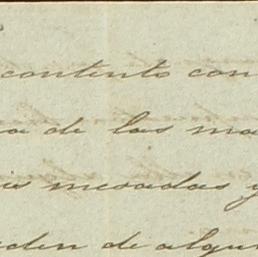 contento con
a de las ma
is mesadas y
eden de algu